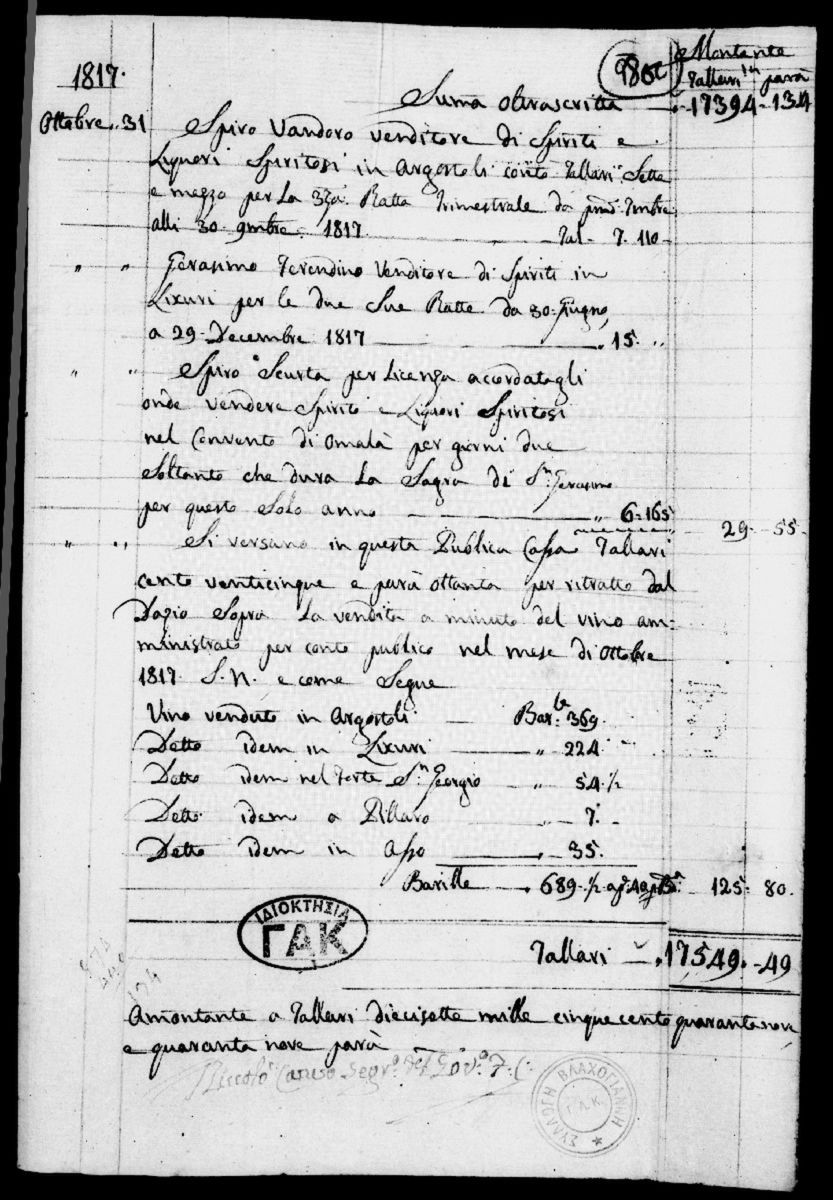 Montante
1817.
Tallari parà
Suma oltrascritta — 17394 - 134
Ottobre .. 31 Spiro Vandoro venditore di Spiriti e
Liquori Spiritosi in Argostoli contò Tallari Sette
e mezzo per La 3za Ratta Trimestrale da pmo 7mbre
alli 30 9mbre 1817 — Tal. 7. 110 -
" " Gerasimo Terendino Venditore di Spiriti in
Lixuri per le due Sue Ratte da 30 Giugno
a 29 Decembre 1817 — " 15. "
" " Spiro Scurta per Licenza acordatagli
onde vendere Spirito e Liquori Spiritosi
nel Convento di Omalà per giorni due
Soltanto che dura La Sagra di Sn Gerasimo
per questo Solo anno — " 6=165
29 - 55
" " Si versano in questa Publica Cassa Tallari
cento venticinque e parà ottanta per ritratto dal
Dazio Sopra La vendita a minuto del vino am=
ministrato per conto publico nel mese di Ottobre
1817 S.N. e come Segue
Vino venduto in Argostoli — Barle 369.
Detto idem in Lixuri — " 224
Detto idem nel Forte Sn Georgio — " 54 1/2
Detto idem a Pillaro — " 7. -
Detto idem in Asso — " 35.
Barille — 689 1/2 125 - 80.
ΙΔΙΟΚΤΗΣΙΑ
ΓΑΚ
Tallari — 17549. - 49
Amontante a Tallari diecisette mille cinquecento quarantanove
e quaranta nove parà
Niccolò Caruso Segr.o del Gov.o
ΣΥΛΛΟΓΗ ΒΛΑΧΟΓΙΑΝΝΗ
Γ.Α.Κ.